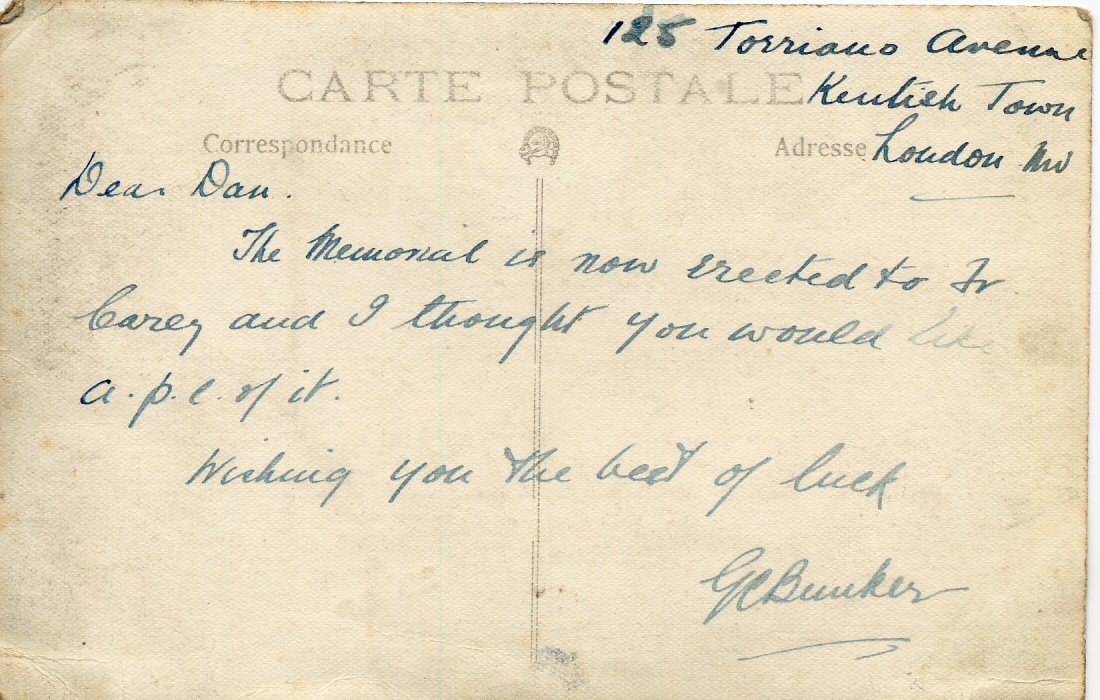 125 Torriano Avenue
CARTE POSTALE Kentish Town
Correspondance Adresse London NW
Dear Dan.
The Memorial is now erected to Fr
Carey and I thought you would like
a.p.c. of it.
Wishing you the best of luck
GCBunker